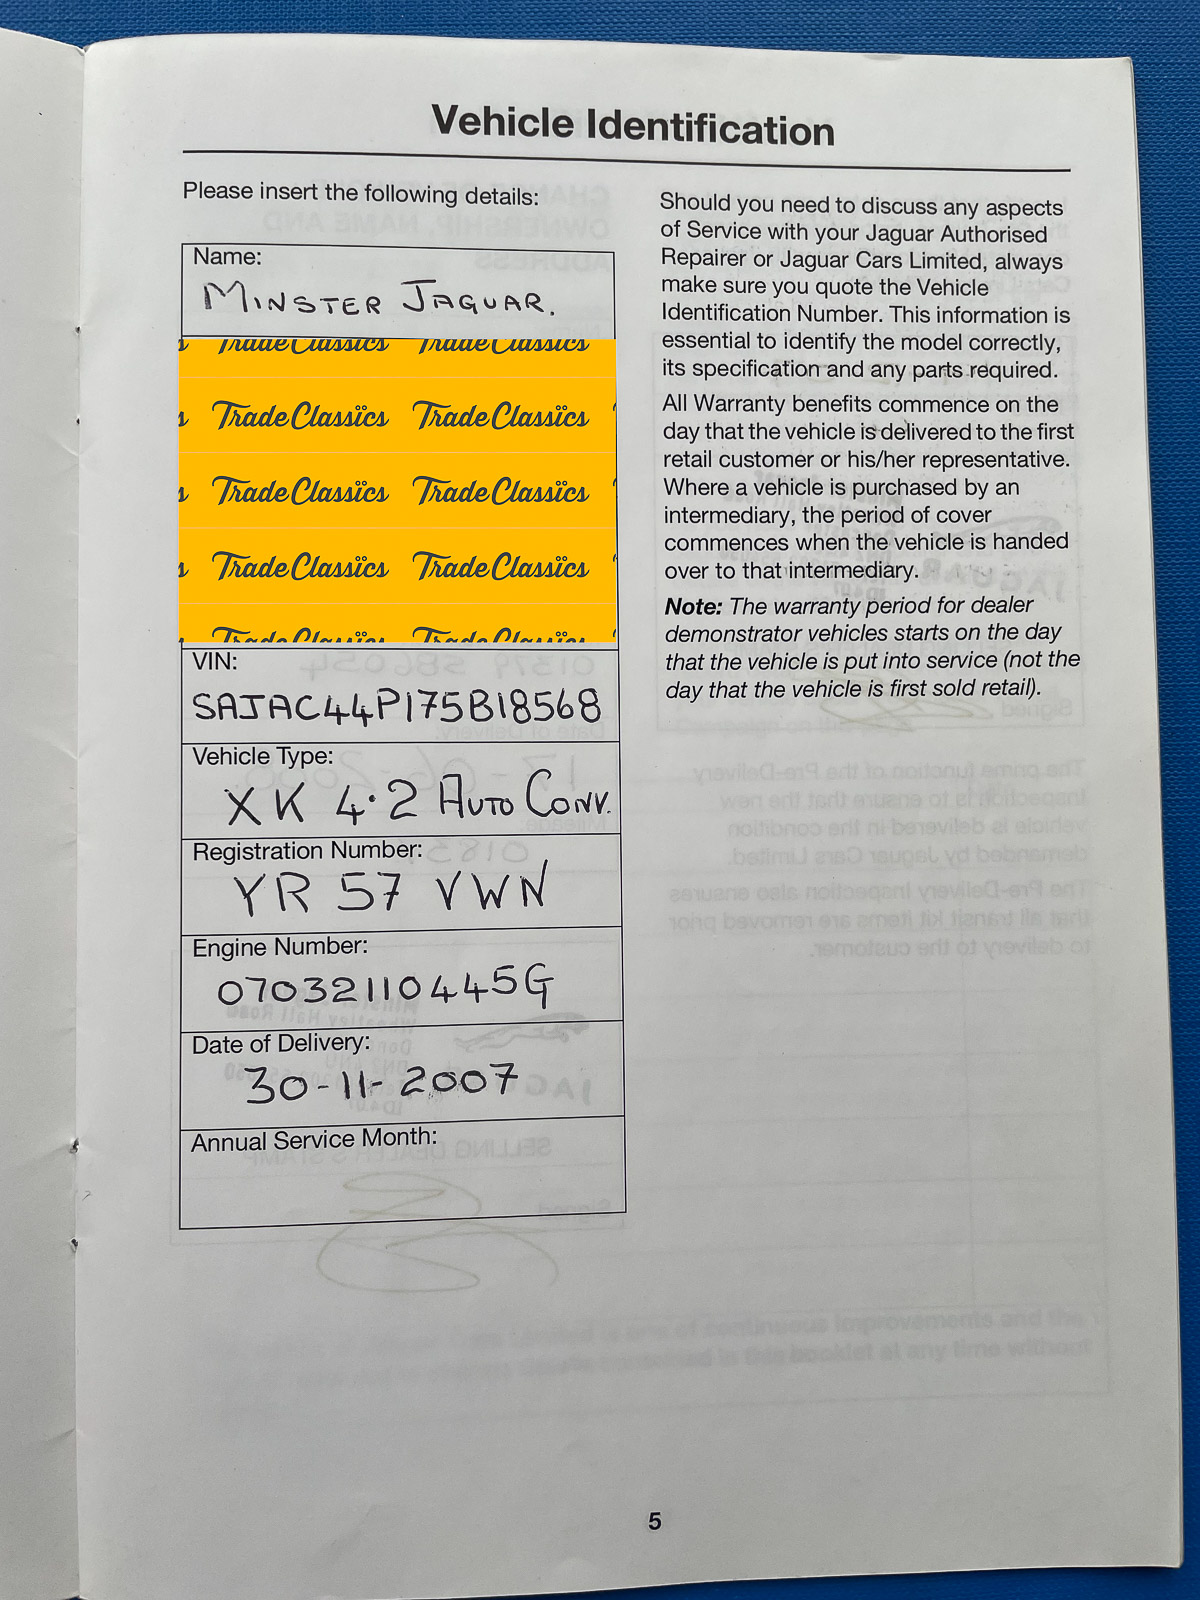 Vehicle Identification
Please insert the following details:
Name:
MINSTER JAGUAR.
TradeClassics TradeClassics
TradeClassics TradeClassics
TradeClassics TradeClassics
TradeClassics TradeClassics
TradeClassics TradeClassics
VIN:
SAJAC44P175B18568
Vehicle Type:
XK 4.2 AUTO CONV.
Registration Number:
YR 57 VWN
Engine Number:
07032110445G
Date of Delivery:
30-11-2007
Annual Service Month:
Should you need to discuss any aspects
of Service with your Jaguar Authorised
Repairer or Jaguar Cars Limited, always
make sure you quote the Vehicle
Identification Number. This information is
essential to identify the model correctly,
its specification and any parts required.
All Warranty benefits commence on the
day that the vehicle is delivered to the first
retail customer or his/her representative.
Where a vehicle is purchased by an
intermediary, the period of cover
commences when the vehicle is handed
over to that intermediary.
Note: The warranty period for dealer
demonstrator vehicles starts on the day
that the vehicle is put into service (not the
day that the vehicle is first sold retail).
5